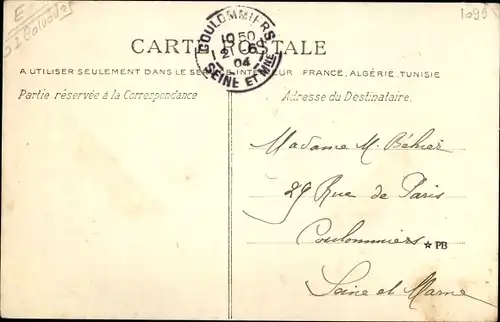 E
1099
COULOMMIERS
10 50
04
SEINE ET MNE
CARTE POSTALE
A UTILISER SEULEMENT DANS LE SERVICE INTÉRIEUR FRANCE, ALGÉRIE, TUNISIE
Partie réservée à la Correspondance
Adresse du Destinataire.
Madame M. Béhier
29 Rue de Paris
Coulommiers
★ PB
Seine et Marne